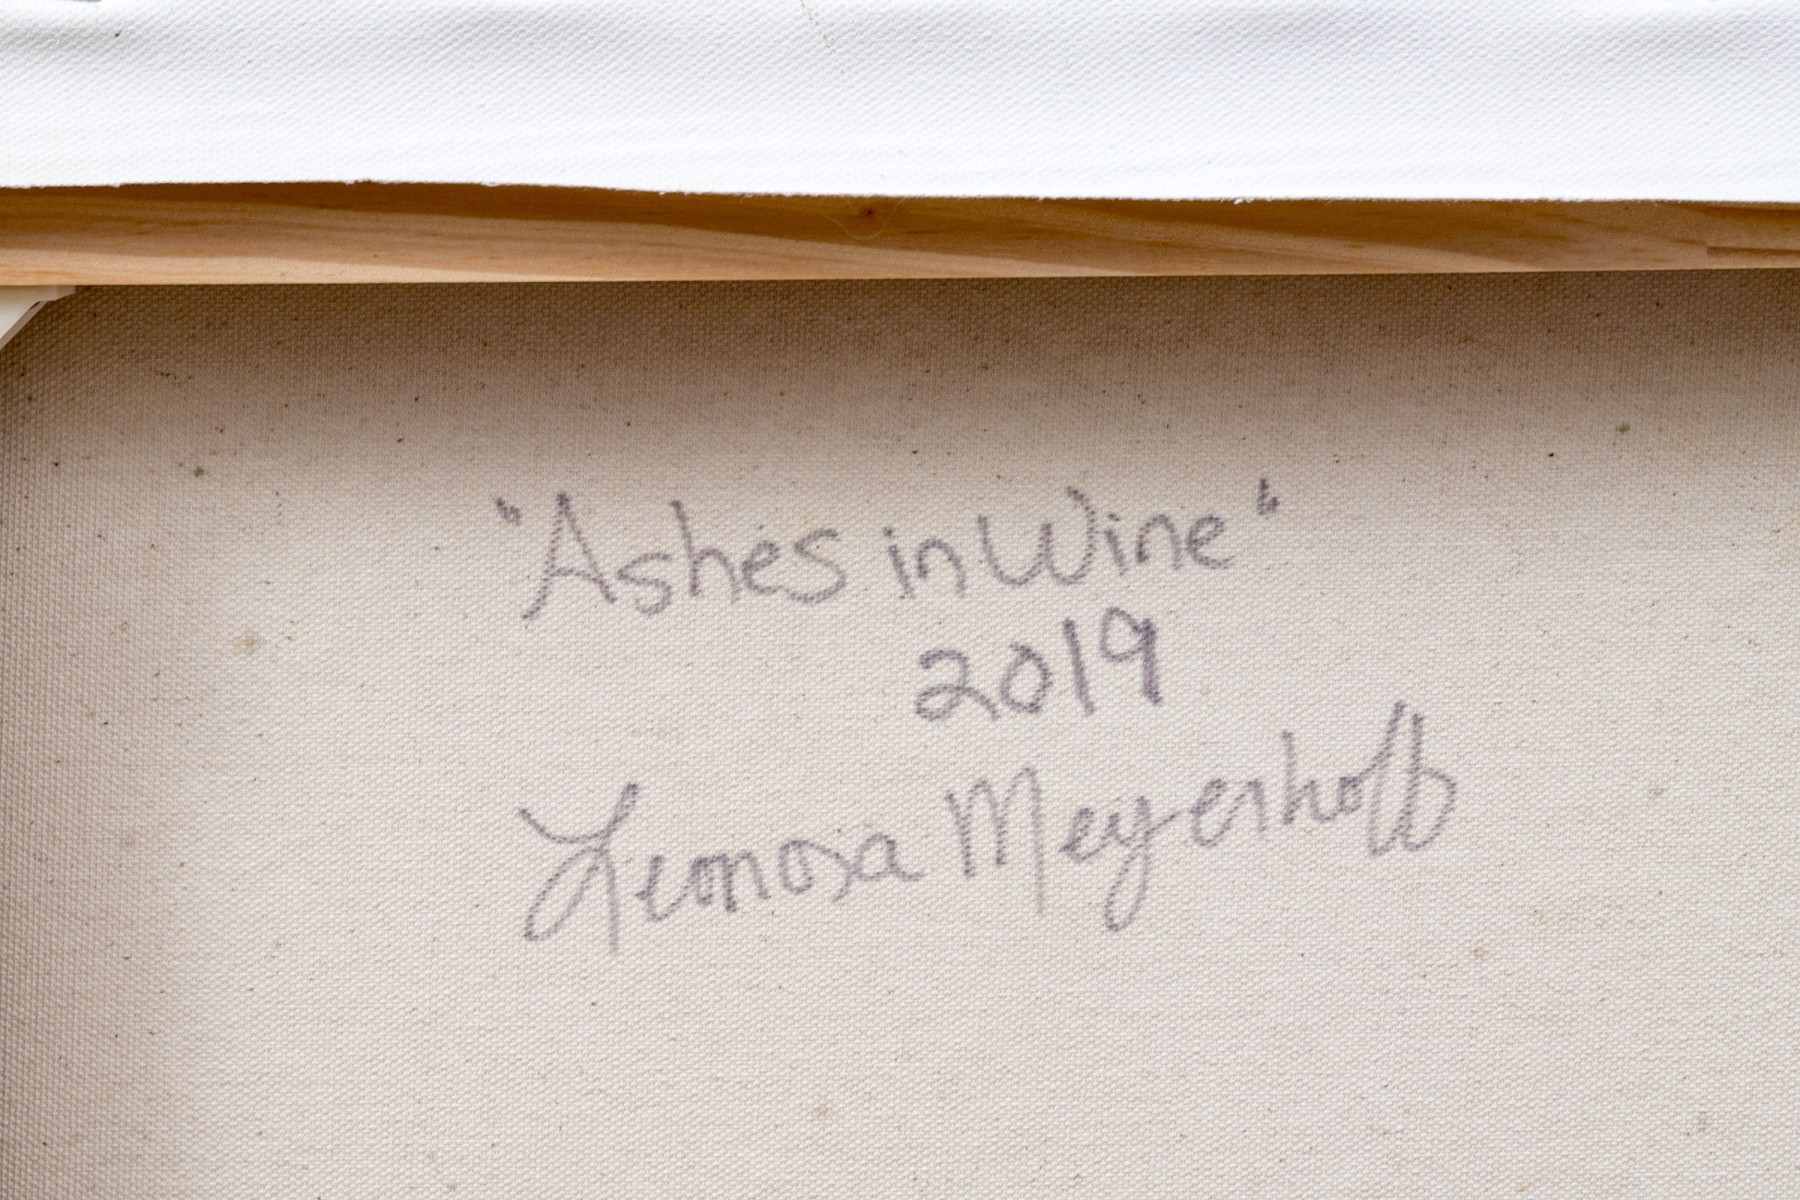 "Ashes in Wine"
2019
Leonora Meyerhoff